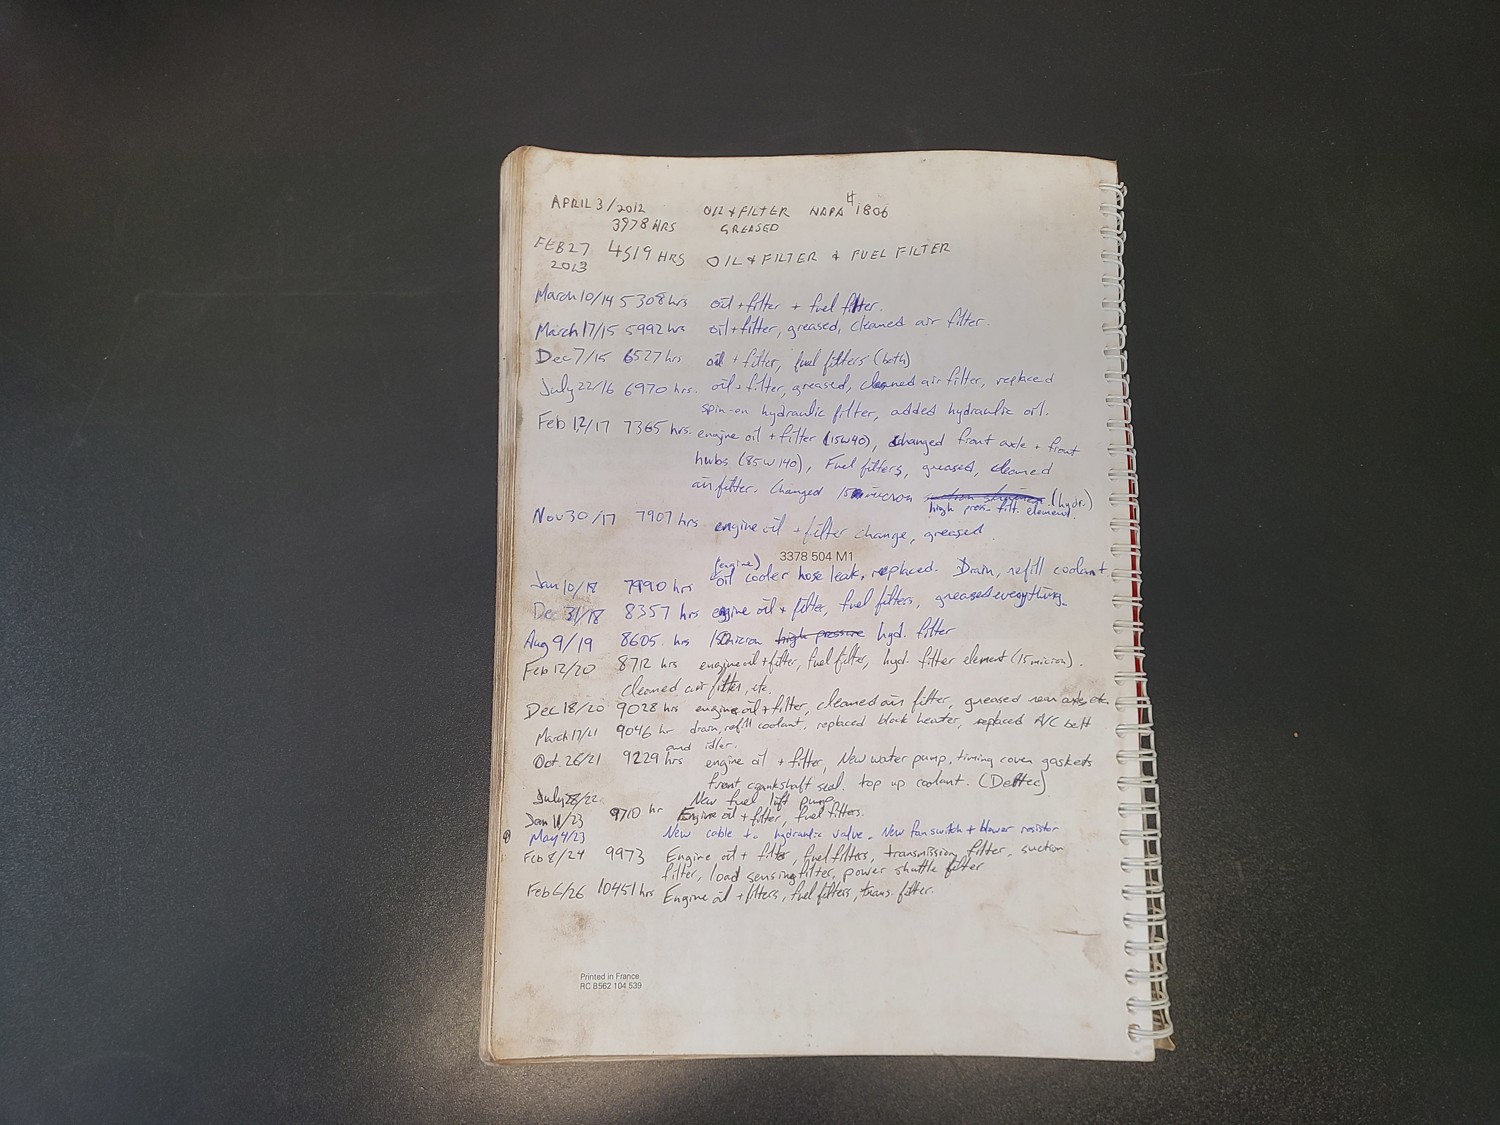 APRIL 3/2012 OIL & FILTER NAPA #1806
3978 HRS GREASED
FEB 27 4519 HRS OIL & FILTER & FUEL FILTER
2013
March 10/14 5308 hrs oil + filter + fuel filter.
March 17/15 5992 hrs oil + filter, greased, cleaned air filter.
Dec 7/15 6527 hrs oil + filter, fuel filters (both)
July 22/16 6970 hrs. oil + filter, greased, cleaned air filter, replaced
spin-on hydraulic filter, added hydraulic oil.
Feb 12/17 7365 hrs. engine oil + filter (15W40), changed front axle + front
hubs (85W140), Fuel filters, greased, cleaned
air filter. Changed 15 micron (hydr.)
high pres. filt. element.
Nov 30/17 7907 hrs engine oil + filter change, greased.
3378 504 M1
(engine)
Jan 10/18 7990 hrs oil cooler hose leak, replaced. Drain, refill coolant
Dec 31/18 8357 hrs engine oil + filter, fuel filters, greased everything.
Aug 9/19 8605. hrs 15micron high pressure hyd. filter
Feb 12/20 8712 hrs engine oil + filter, fuel filter, hyd. filter element (15 micron).
cleaned air filter, etc.
Dec 18/20 9028 hrs engine oil + filter, cleaned air filter, greased rear axle etc.
March 17/21 9046 hr drain, refill coolant, replaced block heater, replaced A/C belt
and idler.
Oct. 26/21 9229 hrs engine oil + filter, New water pump, timing cover gaskets
front crankshaft seal. top up coolant. (Deltec)
July 28/22 New fuel lift pump
Jan 11/23 9710 hr Engine oil + filter, fuel filters.
May 4/23 New cable to hydraulic valve. New fan switch + blower resistor
Feb 8/24 9973 Engine oil + filter, fuel filters, transmission filter, suction
filter, load sensing filter, power shuttle filter
Feb 6/26 10451 hrs Engine oil + filters, fuel filters, trans. filter.
Printed in France
RC B562 104 539